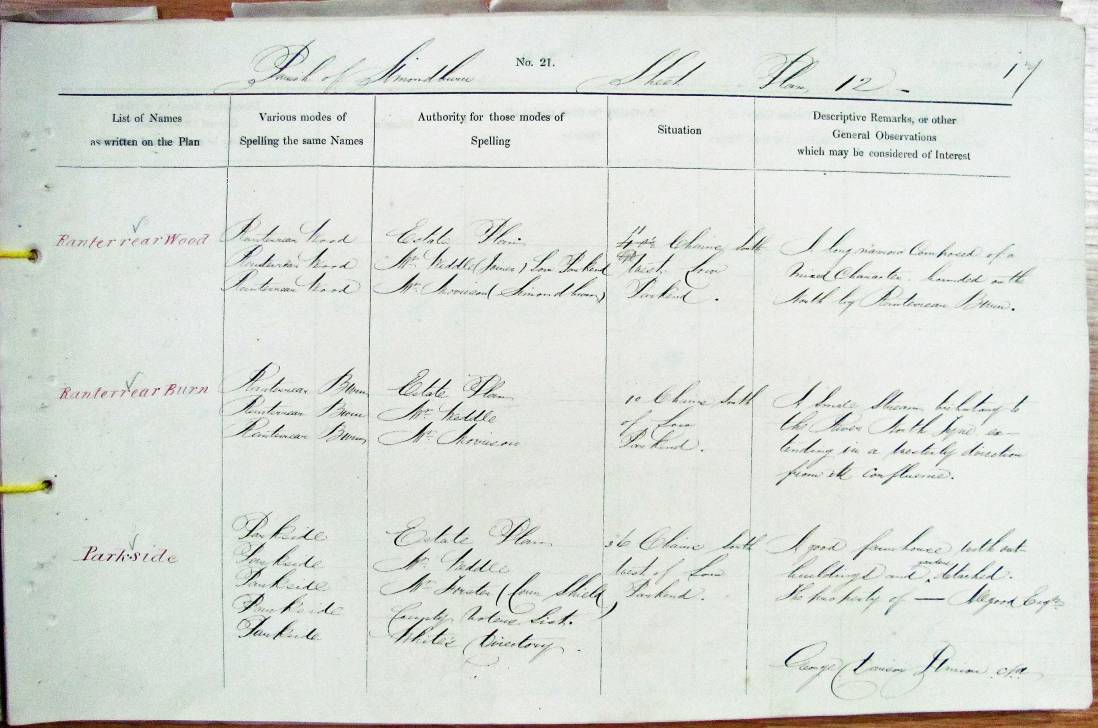 Parish of Simondburn No. 21. Sheet Plan 12 - 17
List of Names
as written on the Plan
Various modes of
Spelling the same Names
Authority for those modes of
Spelling
Situation
Descriptive Remarks, or other
General Observations
which may be considered of Interest
Ranterrear Wood
Ranterrear Wood
Ranterrear Wood
Ranterrear Wood
Estate Plan
Mr. Weddle (James) Low Parkend
Mr. Morrison (Simondburn)
Chains South
West Low
Parkend.
A long narrow Composed of a
Mixed Character. bounded on the
North by Ranterrear Burn.
Ranterrear Burn
Ranterrear Burn
Ranterrear Burn
Ranterrear Burn
Estate Plan
Mr. Weddle
Mr. Morrison
10 Chains South
of Low
Parkend.
A Small Stream, tributary to
the River North Tyne ex-
tending in a westerly direction
from its confluence.
Parkside
Parkside
Parkside
Parkside
Parkside
Parkside
Estate Plan
Mr. Weddle
Mr. Forster (Shield)
County Voters List.
White's Directory.
36 Chains South
West of Low
Parkend.
A good farmhouse with out-
buildings and garden attached.
The property of — Allgood Esqre
George